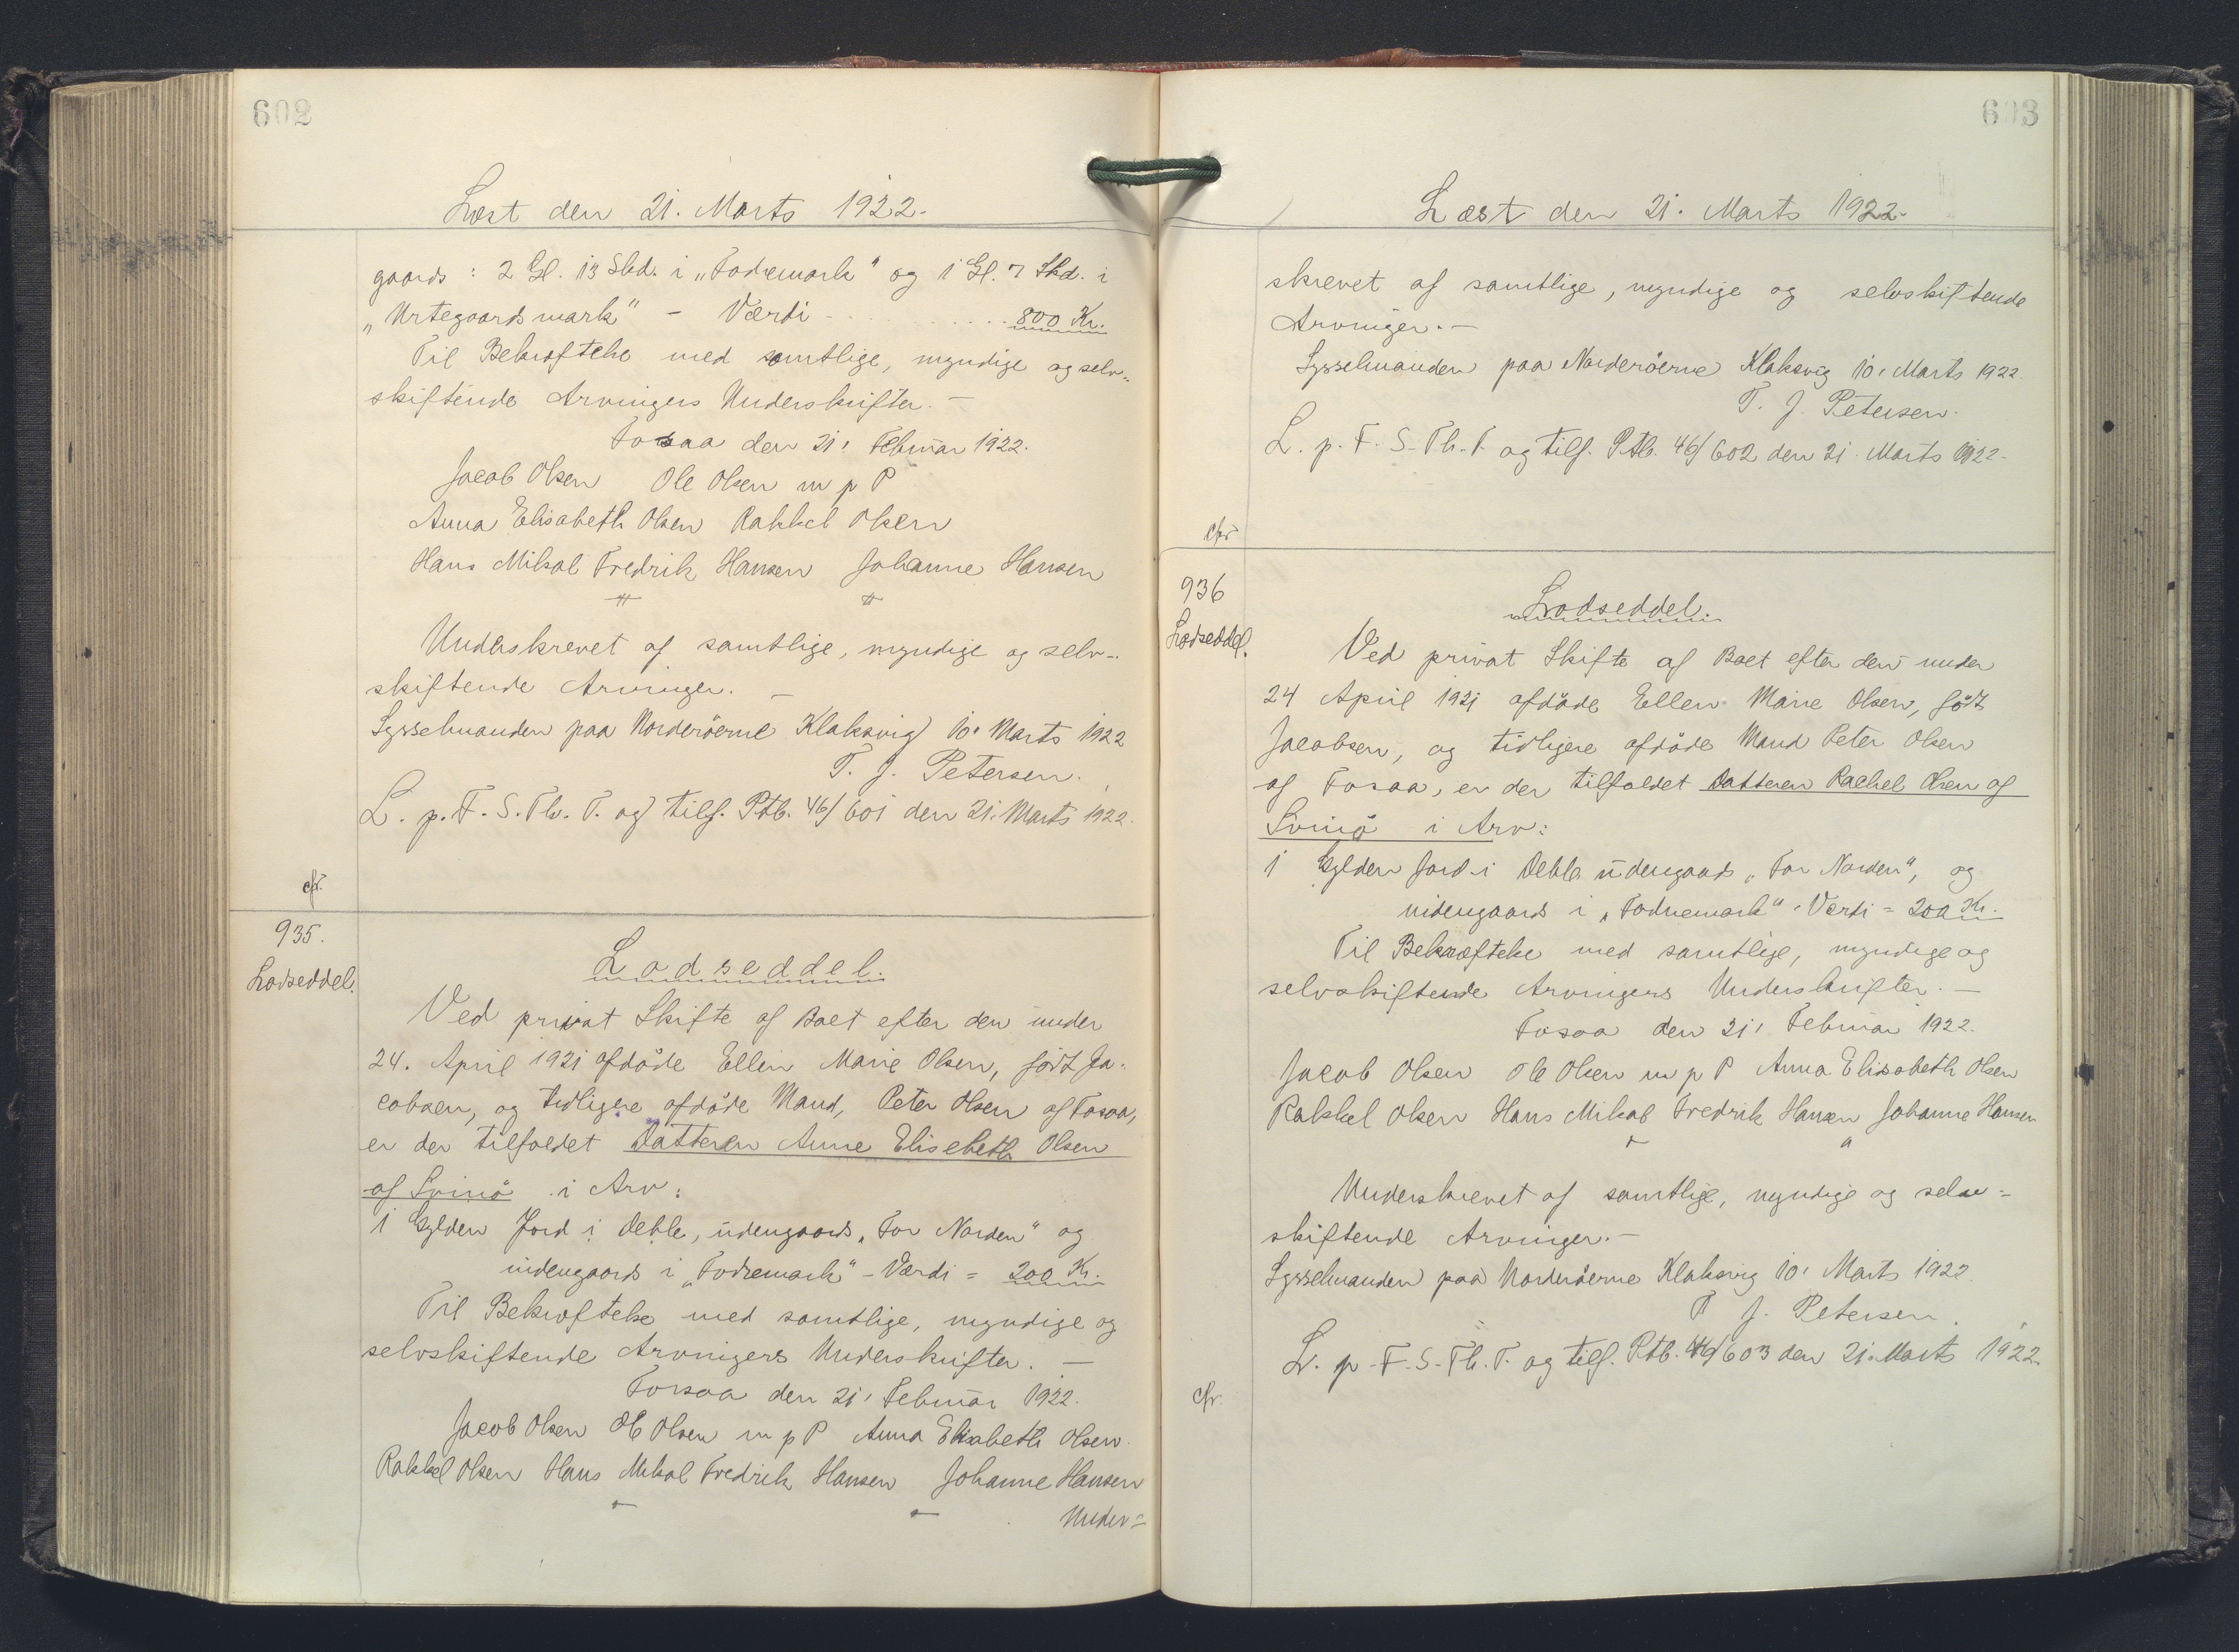 602
Læst den 21. Marts 1922.
gaards: 2 Gl. 13 Skd. i „Todnemark" og 1 Gl. 7 Skd. i
„Urtegaardsmark" - Værdi - 800 Kr.
Til Bekræftelse med samtlige, myndige og selv-
skiftende Arvingers Underskrifter. -
Tosaa den 21. Februar 1922.
Jacob Olsen Ole Olsen m p P
Anna Elisabeth Olsen Rakkel Olsen
Hans Mikal Fredrik Hansen Johanne Hansen
Underskrevet af samtlige, myndige og selv-
skiftende Arvinger. -
Sysselmanden paa Norderöerne Klaksvig 10. Marts 1922
T. J. Petersen.
L. p. F. S. Th. T. og tilf. Ptb. 46/601 den 21. Marts 1922.
cfr.
935.
Lodseddel.
Lodseddel.
Ved privat Skifte af Boet efter den under
24. April 1921 afdöde Ellen Marie Olsen, födt Ja-
cobsen, og tidligere afdöde Mand, Peter Olsen af Tosaa,
er der tilfaldet Datteren Anne Elisebeth Olsen
af Svinö i Arv:
1 Gylden Jord i Deble, udengaards „For Norden" og
indengaards i „Todnemark" - Værdi = 200 Kr.
Til Bekræftelse med samtlige, myndige og
selvskiftende Arvingers Underskrifter. -
Torsaa den 21. Februar 1922.
Jacob Olsen Ole Olsen m p P Anna Elisabeth Olsen
Rakkel Olsen Hans Mikal Fredrik Hansen Johanne Hansen
Under=
603
Læst den 21. Marts 1922.
skrevet af samtlige, myndige og selvskiftende
Arvinger. -
Sysselmanden paa Norderöerne Klaksvig 10. Marts 1922.
T. J. Petersen.
L. p. F. S. Th. T. og tilf. Ptb. 46/602 den 21. Marts 1922.
cfr
936
Lodseddel.
Lodseddel.
Ved privat Skifte af Boet efter den under
24 April 1921 afdöde Ellen Marie Olsen, födt
Jacobsen, og tidligere afdöde Mand Peter Olsen
af Tosaa, er der tilfaldet Datteren Rachel Olsen af
Svinö i Arv:
1 Gylden Jord i Deble udengaards „For Norden", og
indengaards i „Todnemark" - Værdi = 200 Kr.
Til Bekræftelse med samtlige, myndige og
selvskiftende Arvingers Underskrifter. -
Tosaa den 21. Februar 1922.
Jacob Olsen Ole Olsen m p P Anna Elisabeth Olsen
Rakkel Olsen Hans Mikal Fredrik Hansen Johanne Hansen
Underskrevet af samtlige, myndige og selv=
skiftende Arvinger. -
Sysselmanden paa Norderöerne Klaksvig 10. Marts 1922.
T J. Petersen.
L. p. F. S. Th. T. og tilf. Ptb. 46/603 den 21. Marts 1922.
cfr.